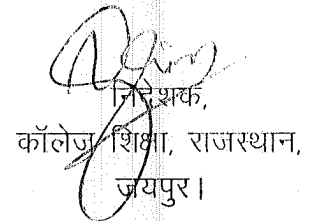 निदेशक,
कॉलेज शिक्षा, राजस्थान,
जयपुर।